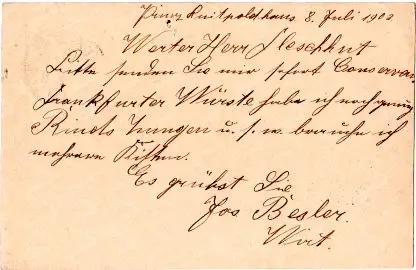 Prinz Luitpoldhaus 8. Juli 1902
Werter Herr Fleschhut
Bitte senden Sie mir sofort Conserven
Frankfurter Würste habe ich noch genug
Rinds Zungen u. s. w. brauche ich
mehrere Kisten.
Es grüßt Sie
Jos Besler.
Wirt.